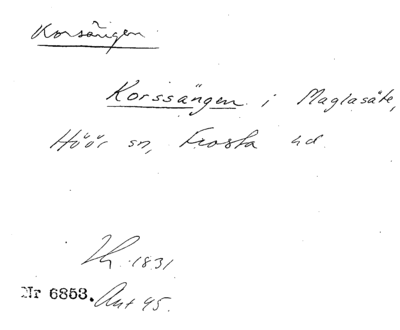 Korsängen
Korssängen i Maglasäte,
Höör sn, Frosta hd
1831
Nr 6853. Ant 45.